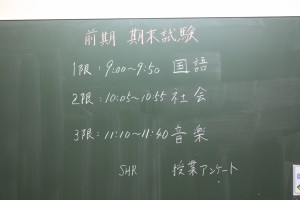 前期 期末試験
1限:9:00~9:50 国語
2限:10:05~10:55 社会
3限:11:10~11:40 音楽
SHR 授業アンケート